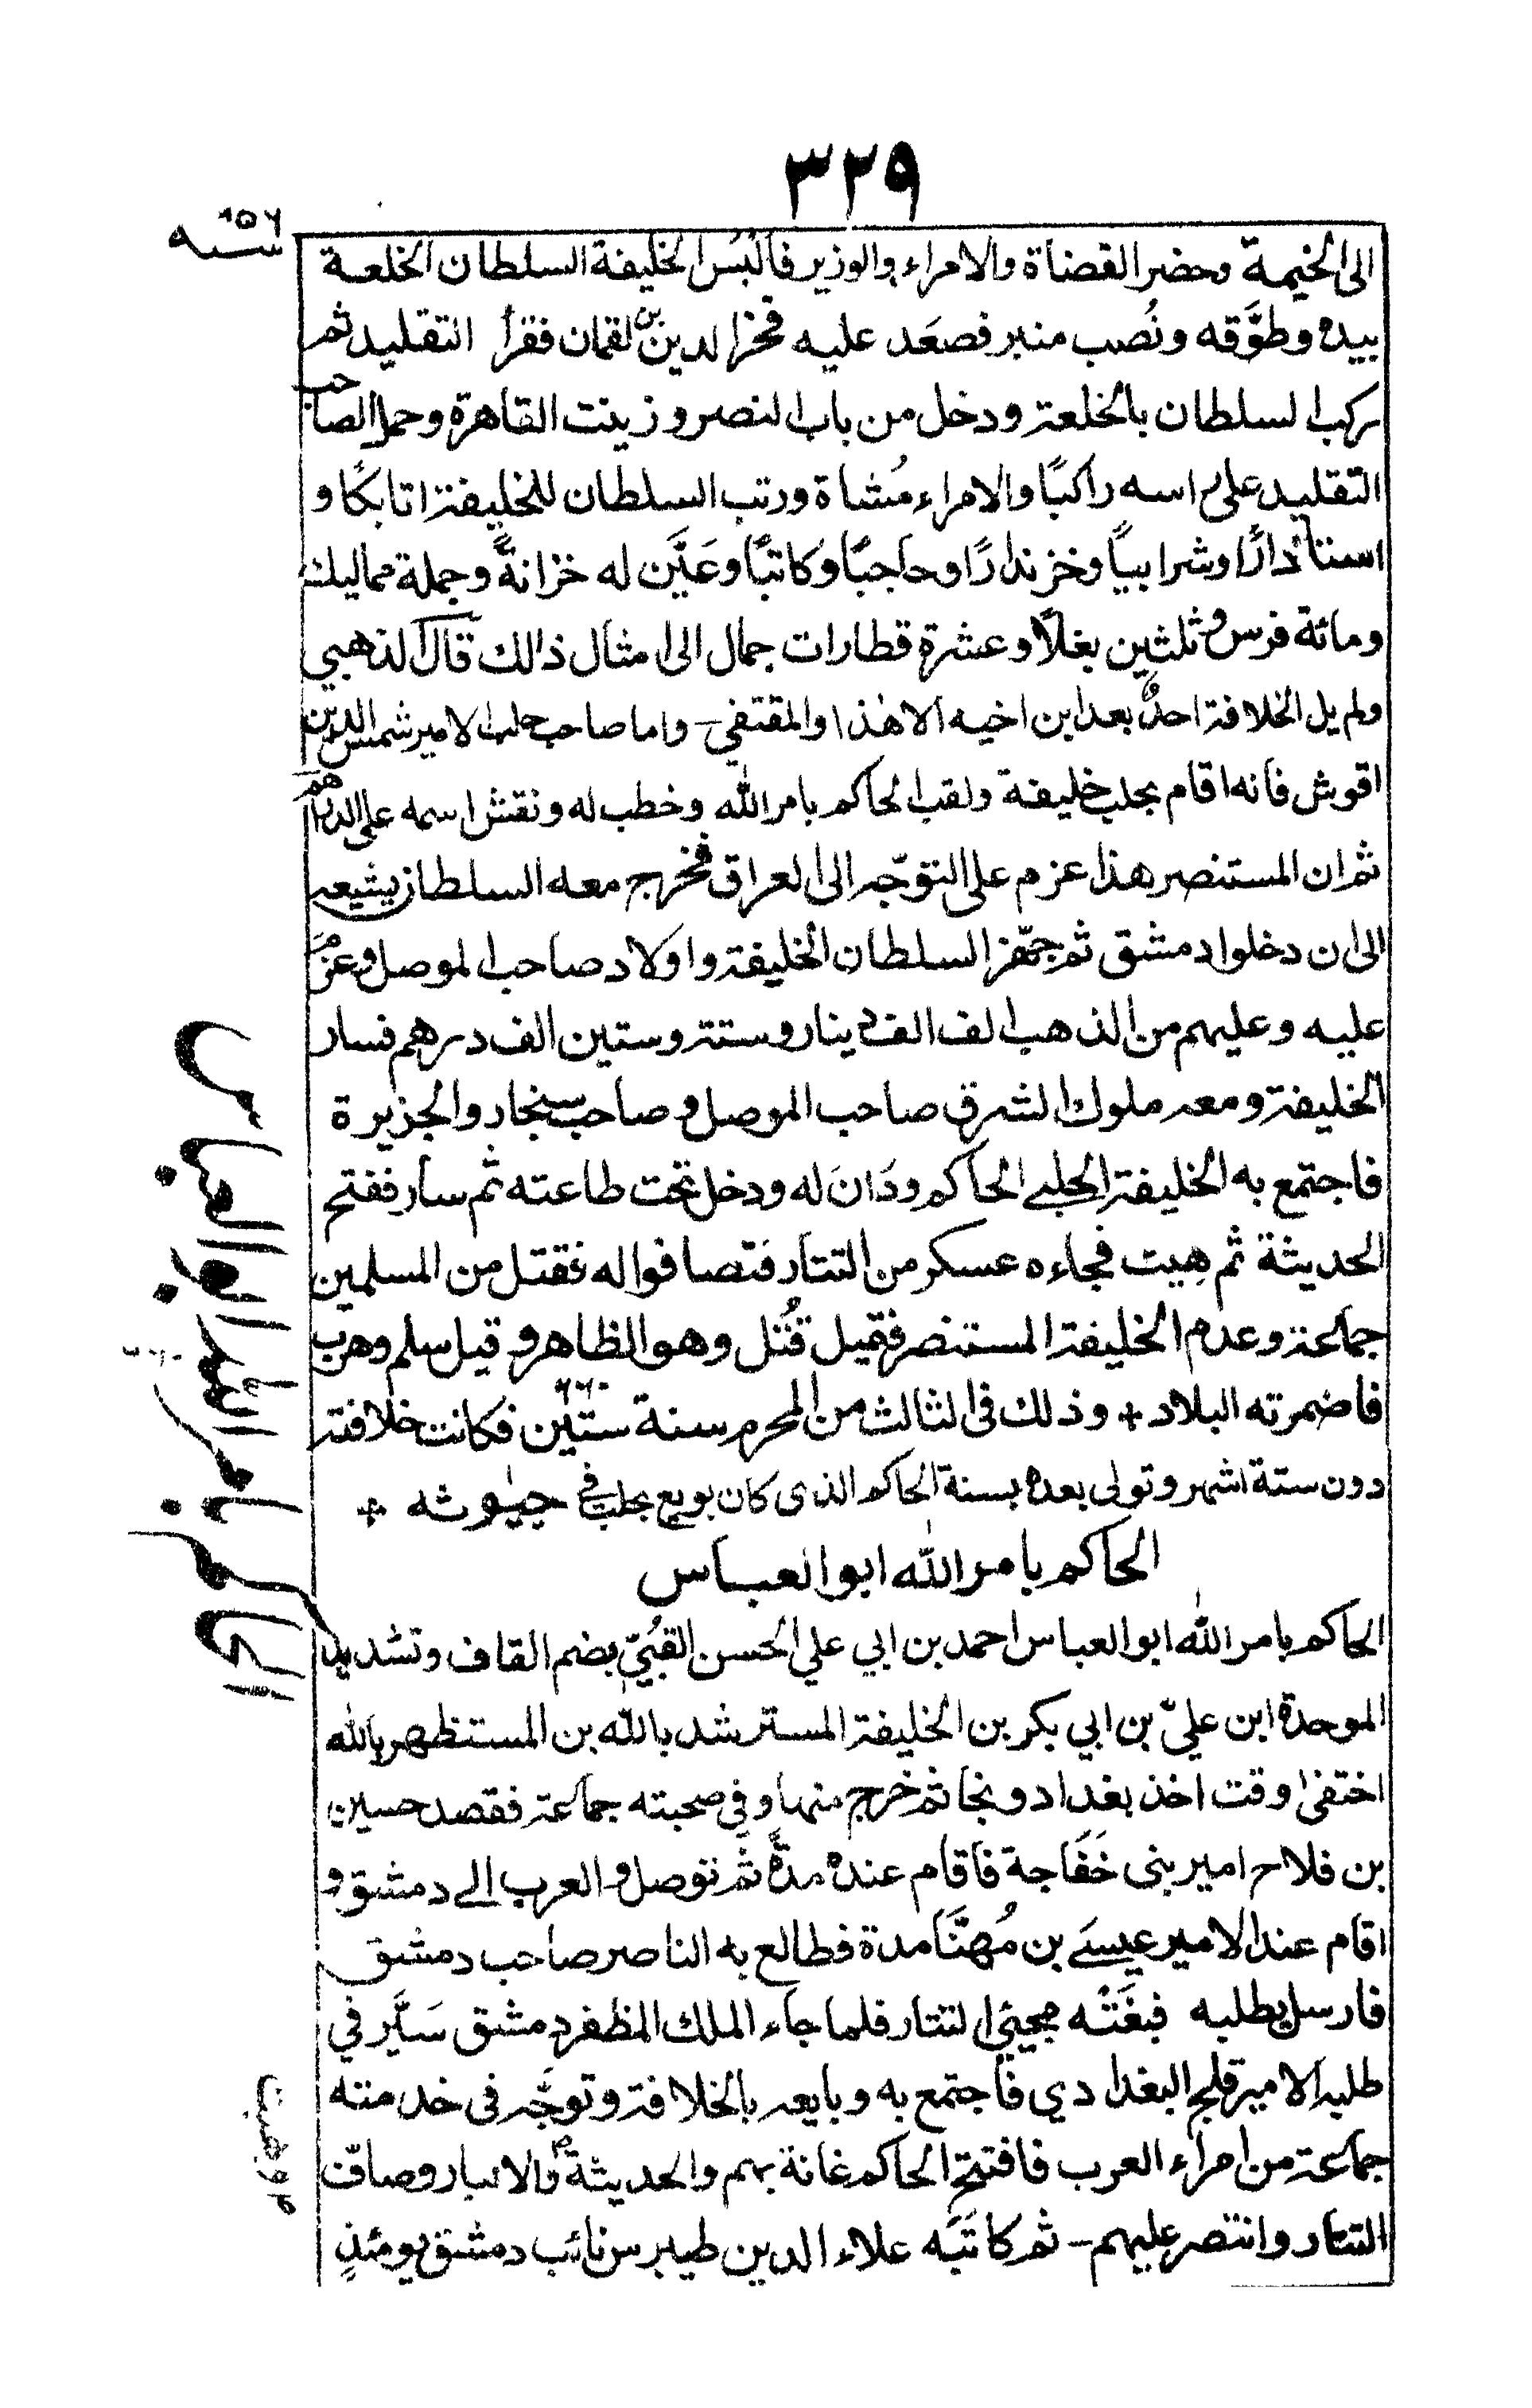 ٣٢٩
سنه ٦٥٩
الى الخيمة وحضر القضاة والامراء والوزير فالبس الخليفة السلطان الخلعة
بيده وطوَّقه ونُصب منبر فصعَد عليه فخر الدين بن لقمان فقرأ التقليد ثم
ركب السلطان بالخلعة ودخل من باب النصر و زينت القاهرة وحمل الصاحب
التقليد على راسه راكبًا والامراء مُشاة ورتب السلطان للخليفة اتابكًا و
استاذ دارًا وشرابيًا وخزندارًا وحاجبًا وكاتبًا وعَيَّن له خزانةً وجملة مماليك
ومائة فرس و ثلثين بغلًا وعشرة قطارات جمال الى امثال ذالك قال الذهبي
ولم يل الخلافة احدٌ بعد ابن اخيه الا هٰذا والمقتفي — واما صاحب حلب الامير شمس الدين
اقوش فانه اقام بحلب خليفة ولقب الحاكم بامر الله وخطب له ونقش اسمه على الدراهم
ثم ان المستنصر هذا عزم على التوجّه الى العراق فخرج معه السلطان يشيعه
الى ان دخلوا دمشق ثم جهّز السلطان الخليفة واولاد صاحب الموصل وغرم
عليه وعليهم من الذهب الف الف دينار وستة وستين الف درهم فسار
الخليفة ومعه ملوك الشرق صاحب الموصل و صاحب سنجار والجزيرة
فاجتمع به الخليفة الحلبي الحاكم ودَانَ له ودخل تحت طاعته ثم سار ففتح
الحديثة ثم هِيت فجاءه عسكر من التتار فتصافوا له فقتل من المسلمين
جماعة وعدم الخليفة المستنصر فقيل قُتل وهو الظاهر و قيل سلم وهرب
فاضمرته البلاد + وذلك فى الثالث من المحرم سنة ستّين ٦٦٠ فكانت خلافته
دون ستة اشهر وتولى بعده بسنة الحاكم الذى كان بويع بحلب في حيٰوته +
الحاكم بامر الله ابو العباس
الحاكم بامر الله ابو العباس احمد بن ابي علي الحسن القبّيّ بضم القاف وتشديد
الموحدة ابن عليّ بن ابي بكر بن الخليفة المسترشد بالله بن المستظهر بالله
اختفى وقت اخذ بغداد ونجا ثم خرج منها وفى صحبته جماعة فقصد حسين
بن فلاح امير بنى خَفَاجة فاقام عنده مدةً ثم توصل و العرب الى دمشق و
اقام عند الامير عيسىَ بن مُهنَّا مدة فطالع به الناصر صاحب دمشق
فارسل يطلبه فبغَتَه مجيئ التتار فلما جاء الملك المظفر دمشق سَيَّر في
طلبه الامير قلج البغدادي فاجتمع به وبايعه بالخلافة وتوجّه فى خدمته
جماعة من امراء العرب فافتتح الحاكم غانة بهم والحديثة والانبار وصافّ
التتار وانتصر عليهم — ثم كاتَبَه علاء الدين طيبرس نائب دمشق يومئذٍ
الحاكم بامر الله ابو العباس